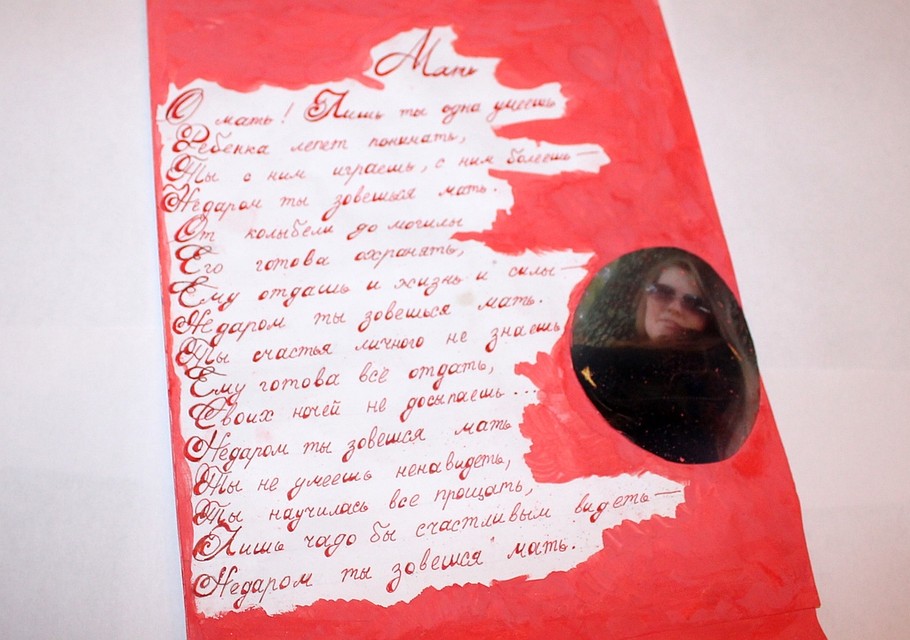 Мать
О мать! Лишь ты одна умеешь
Ребенка лепет понимать,
Ты с ним играешь, с ним болеешь —
Недаром ты зовешься мать.
От колыбели до могилы
Его готова охранять,
Ему отдашь и жизнь и силы —
Недаром ты зовешься мать.
Ты счастья личного не знаешь
Ему готова всё отдать,
Своих ночей не досыпаешь...
Недаром ты зовешся мать
Ты не умеешь ненавидеть,
Ты научилась все прощать,
Лишь чадо бы счастливым видеть —
Недаром ты зовешся мать.